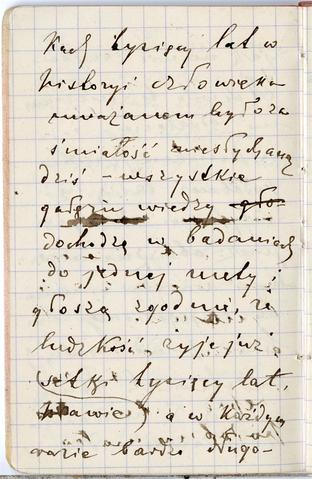 tysięcy lat w
historyi człowieka
uważanem było za
śmiałość niesłychaną
dziś – wszystkie
gałęzie wiedzy gło-
dochodzą w badaniach
do jednej mety i
głoszą zgodnie, że
ludzkość żyje już
setki tysięcy lat,
prawie, a w każdym
razie bardzo długo-